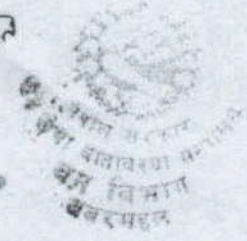 नेपाल सरकार
वातावरण मन्त्रालय
वन विभाग
बबरमहल